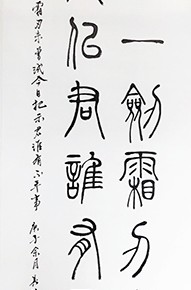 一劍霜刃
似君誰有
霜刃未曾試今日把示君誰有不平事 庚子余月